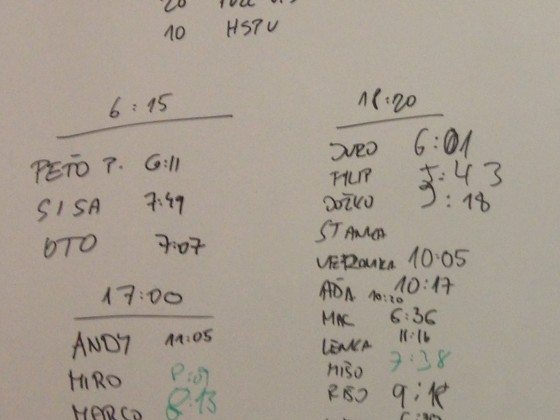 20
10 HSPU
6:15
PEŤO P. 6:11
SISA 7:49
OTO 7:07
17:00
ANDY 11:05
MIRO
MARCO 8:13
18:20
ĎURO 6:01
FILIP 5:43
JOŽKO 5:18
STANKA
VERONIKA 10:05
AĎA 10:17
10:20
MAC 6:36
LENKA 11:16
MIŠO 7:38
RIŠO 9:18